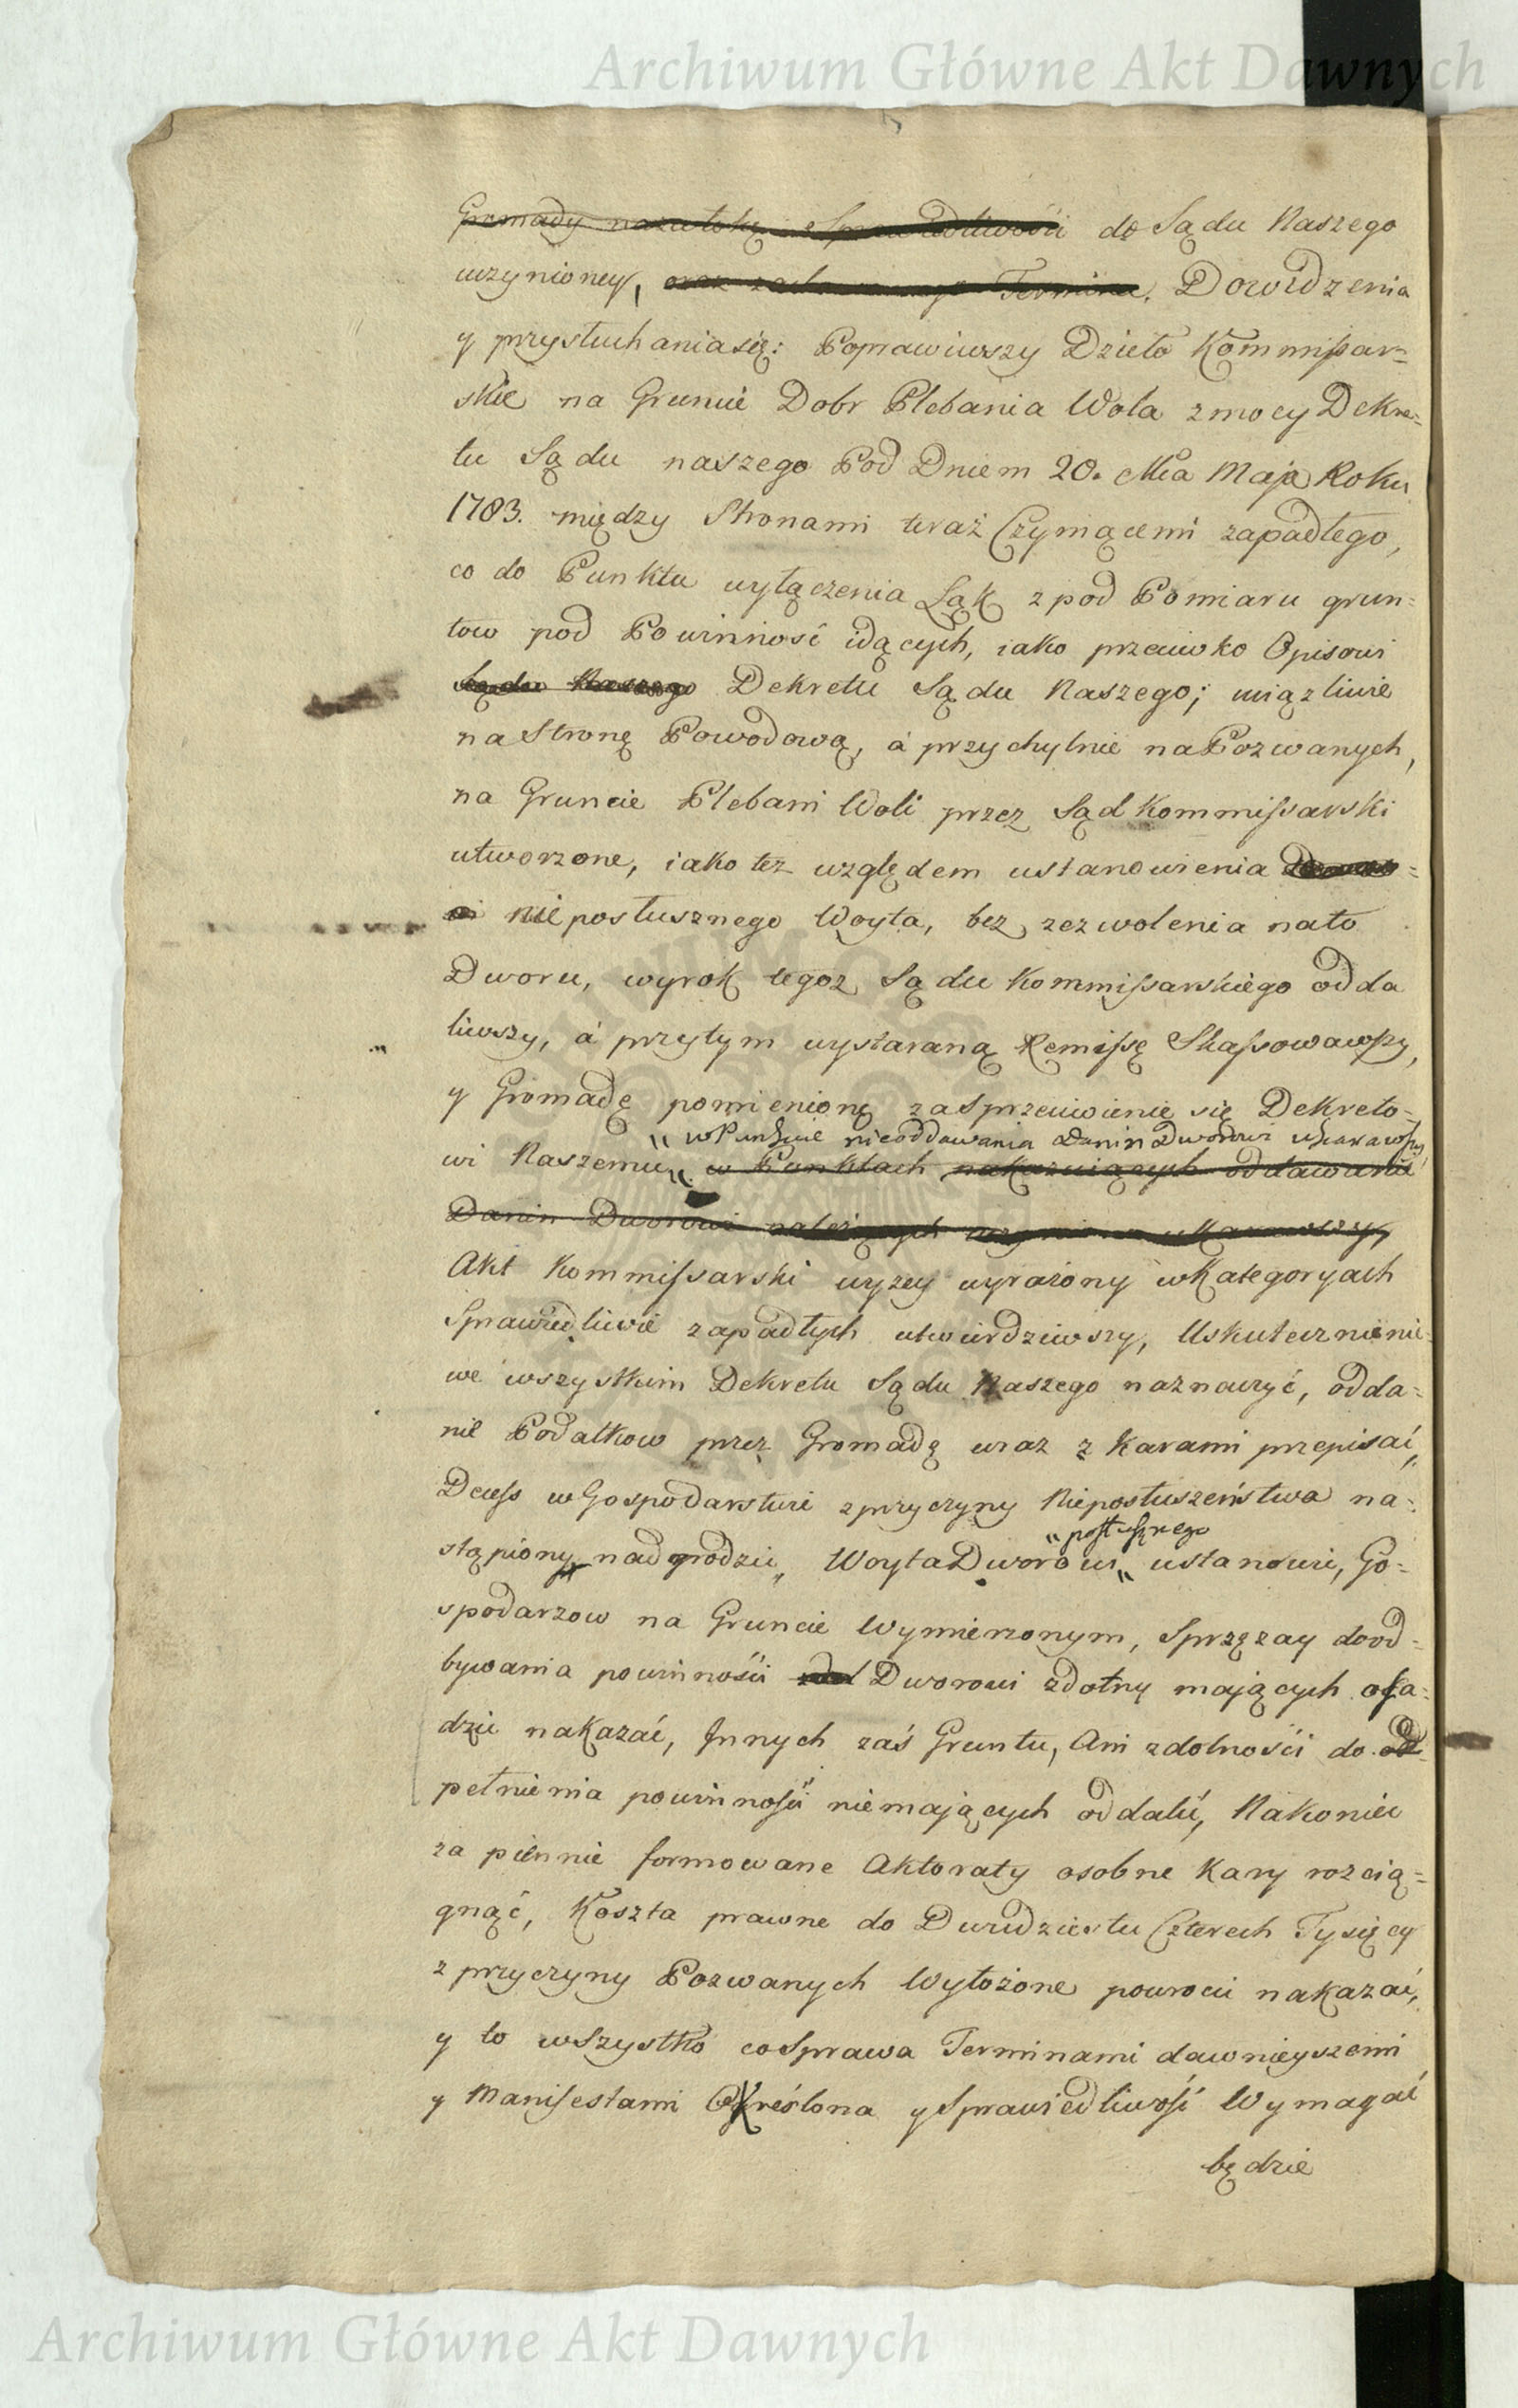 Archiwum Główne Akt Dawnych
Gromady do Sądu Naszego
uczynioney, Termina. Dowidzenia
y przysłuchania się: Poprawiwszy Dzieło Kommissar=
skie na Gruncie Dobr Plebania Wola z mocy Dekre=
tu Sądu naszego Pod Dniem 20. Mca Maja Roku
1783. między Stronami teraz Czyniącemi zapadłego,
co do Punktu wyłączenia Łąk z pod Pomiaru grun=
tow pod Powinność idących, iako przeciwko Opisowi
Sądu Naszego Dekretu Sądu Naszego; uciązliwie
na Stronę Powodową, á przychylnie na Pozwanych,
na Gruncie Plebani Woli przez Sąd Kommissarski
utworzone, iako tez względem ustanowienia =
nieposłusznego Woyta, bez zezwolenia na to
Dworu, wyrok tegoz Sądu Kommissarskiego odda
liwszy, á przytym wystaraną Remissę Skassowawszy,
y Gromadę pomienioną za Sprzeciwienie się Dekreto=
" w Punkcie nieoddawania Danin Dworowi ukarawszy
wi Naszemu " w Punktach nakazuiących oddawanie
Danin Dworowi należących ukarawszy,
Akt Kommissarski wyzey wyrażony w Kategoryach
Sprawiedliwie zapadłych utwierdziwszy, Uskutecznienie
we wszystkim Dekretu Sądu Naszego naznaczyć, odda=
nie Podatkow przez Gromadę wraz z Karami przepisać,
Decess w Gospodarstwie z przyczyny Nieposłuszeństwa na=
" posłusznego
stąpiony nadgrodzić, Woyta Dworowi " ustanowić, Go=
spodarzow na Gruncie Wymierzonym, Sprzęzay do od=
bywania powinności Dworowi zdolny mających osa=
dzić nakazać, Innych zaś Gruntu, Ani zdolności do
pełnienia powinności niemających oddalić, Nakoniec
za pieniąc formowane Aktoraty osobne Kary rozcią=
gnąć, Koszta prawne do Dwudziestu Czterech Tysięcy
z przyczyny Pozwanych Wyłożone powrocić nakazać,
y to wszystko co Sprawa Terminami dawnieyszemi
y Manifestami Określona y Sprawiedliwość Wymagać
będzie
Archiwum Główne Akt Dawnych